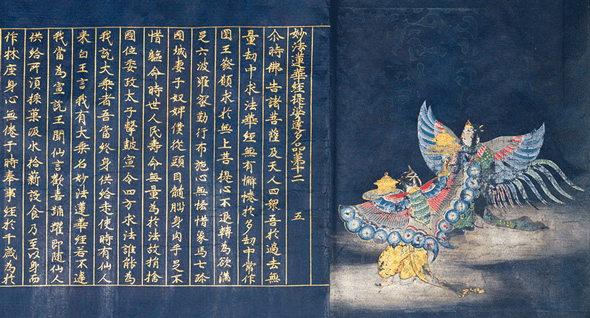 妙法蓮華經提婆達多品第十二 五
尒時佛告諸菩薩及天人四眾吾於過去無
量劫中求法華經無有懈惓於多劫中常作
國王發願求於無上菩提心不退轉為欲滿
足六波羅蜜勤行布施心無悋惜象馬七珍
國城妻子奴婢僕從頭目髓腦身肉手足不
惜軀命時世人民壽命無量為於法故捐捨
國位委政太子擊鼓宣令四方求法誰能為
我說大乘者吾當終身供給走使時有仙人
來白王言我有大乘名妙法蓮華經若不違
我當為宣說王聞仙言歡喜踊躍即隨仙人
供給所須採菓汲水拾薪設食乃至以身而
作牀座身心無惓于時奉事經於千歲為於